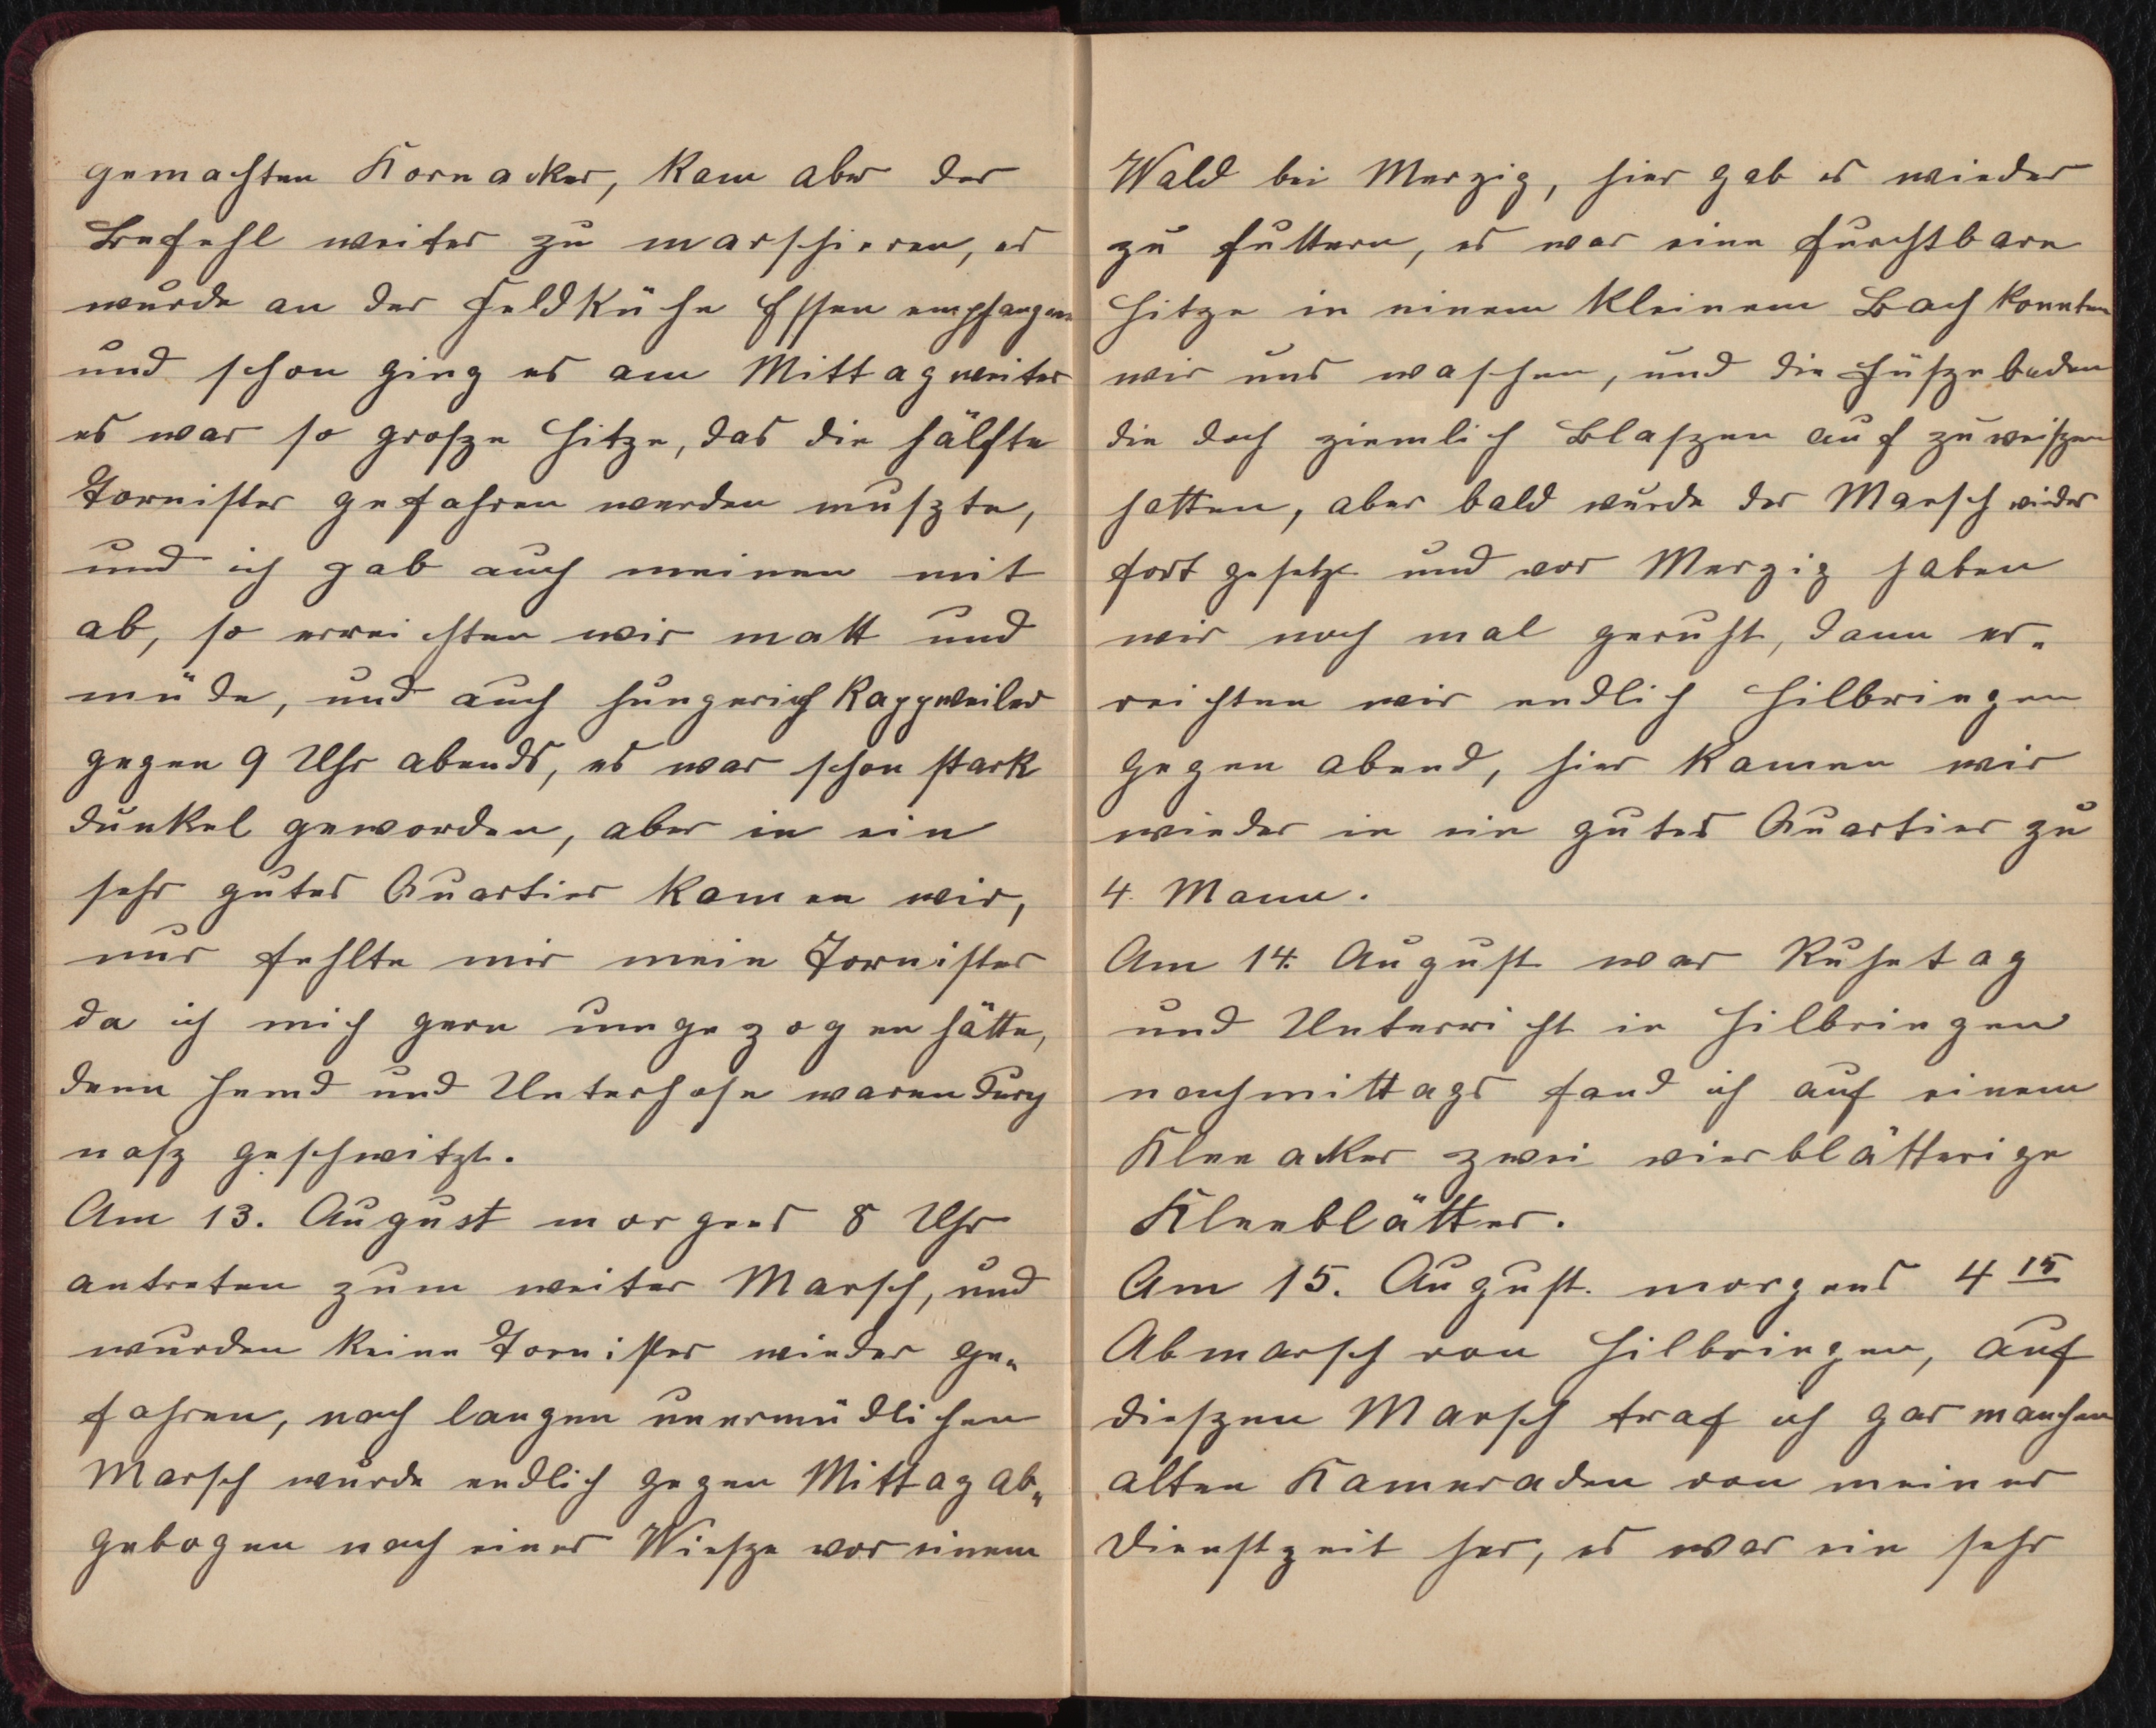 gemachten Kornacker, kam aber der
Befehl weiter zu marschieren, es
wurde an der Feldküche Essen empfangen
und schon ging es am Mittag weiter
es war so grosze Hitze, das die hälfte
Tornister gefahren werden muszte,
und ich gab auch meinen mit
ab, so erreichten wir matt und
müde, und auch hungerich Rappweiler
gegen 9 Uhr abends, es war schon stark
dunkel geworden, aber in ein
sehr gutes Quartier kamen wir,
nur fehlte mir mein Tornister
da ich mich gern umgezogen hätte,
denn Hemd und Unterhose waren durch
nasz geschwitzt.
Am 13. August morgens 8 Uhr
antreten zum weiter Marsch, und
wurden keine Tornister wieder ge„
fahren, nach langen unermüdlichen
Marsch wurde endlich gegen Mittag ab„
gebogen nach einer Wiesze vor einem
Wald bei Merzig, hier gab es wieder
zu futtern, es war eine furchtbare
Hitze in einem kleinem Bach konnten
wir uns waschen, und die Füsze baden
die doch ziemlich Blaszen auf zu weiszen
hatten, aber bald wurde der Marsch wieder
fort gesetzt und vor Merzig haben
wir noch mal geruht, dann er„
reichten wir endlich Hilbringen
gegen abend, hier kamen wir
wieder in ein gutes Quartier zu
4 Mann.
Am 14. August war Ruhetag
und Unterricht in Hilbringen
nachmittags fand ich auf einem
Kleeacker zwei vierblätterige
Kleeblätter.
Am 15. August. morgens 4 15
Abmarsch von Hilbringen, auf
dieszen Marsch traf ich gar manchen
alten Kameraden von meiner
Dienstzeit her, es war ein sehr